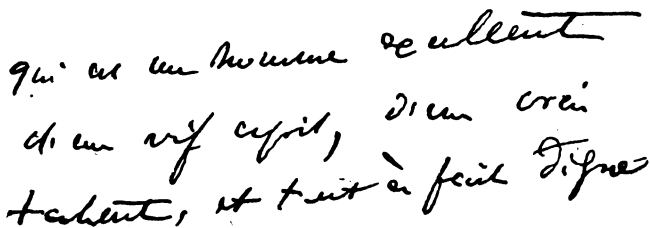 qui est un homme excellent
d'un vif esprit, d'un vrai
talent, et tout à fait digne